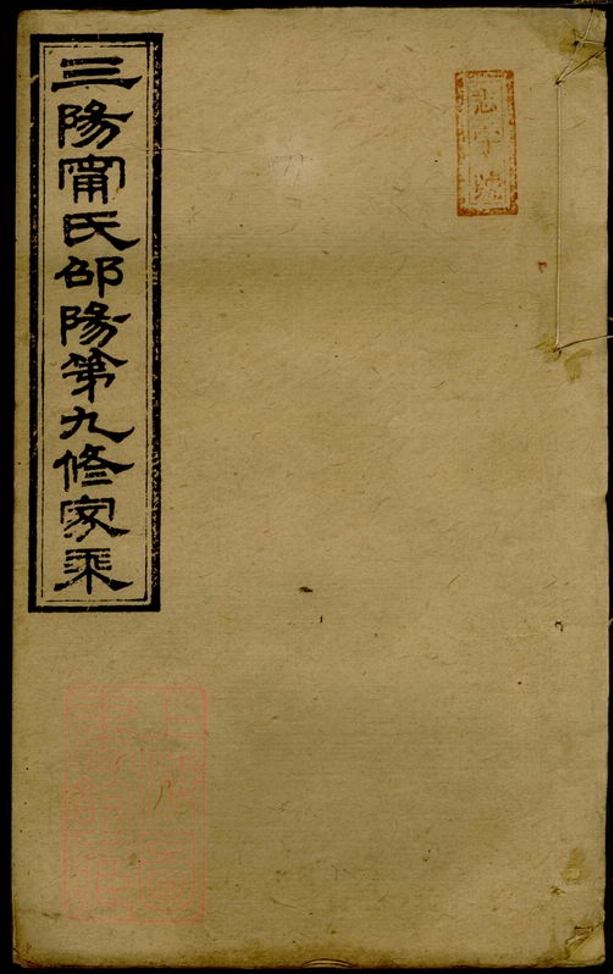 三陽甯氏邵陽第九修家乘
志字號